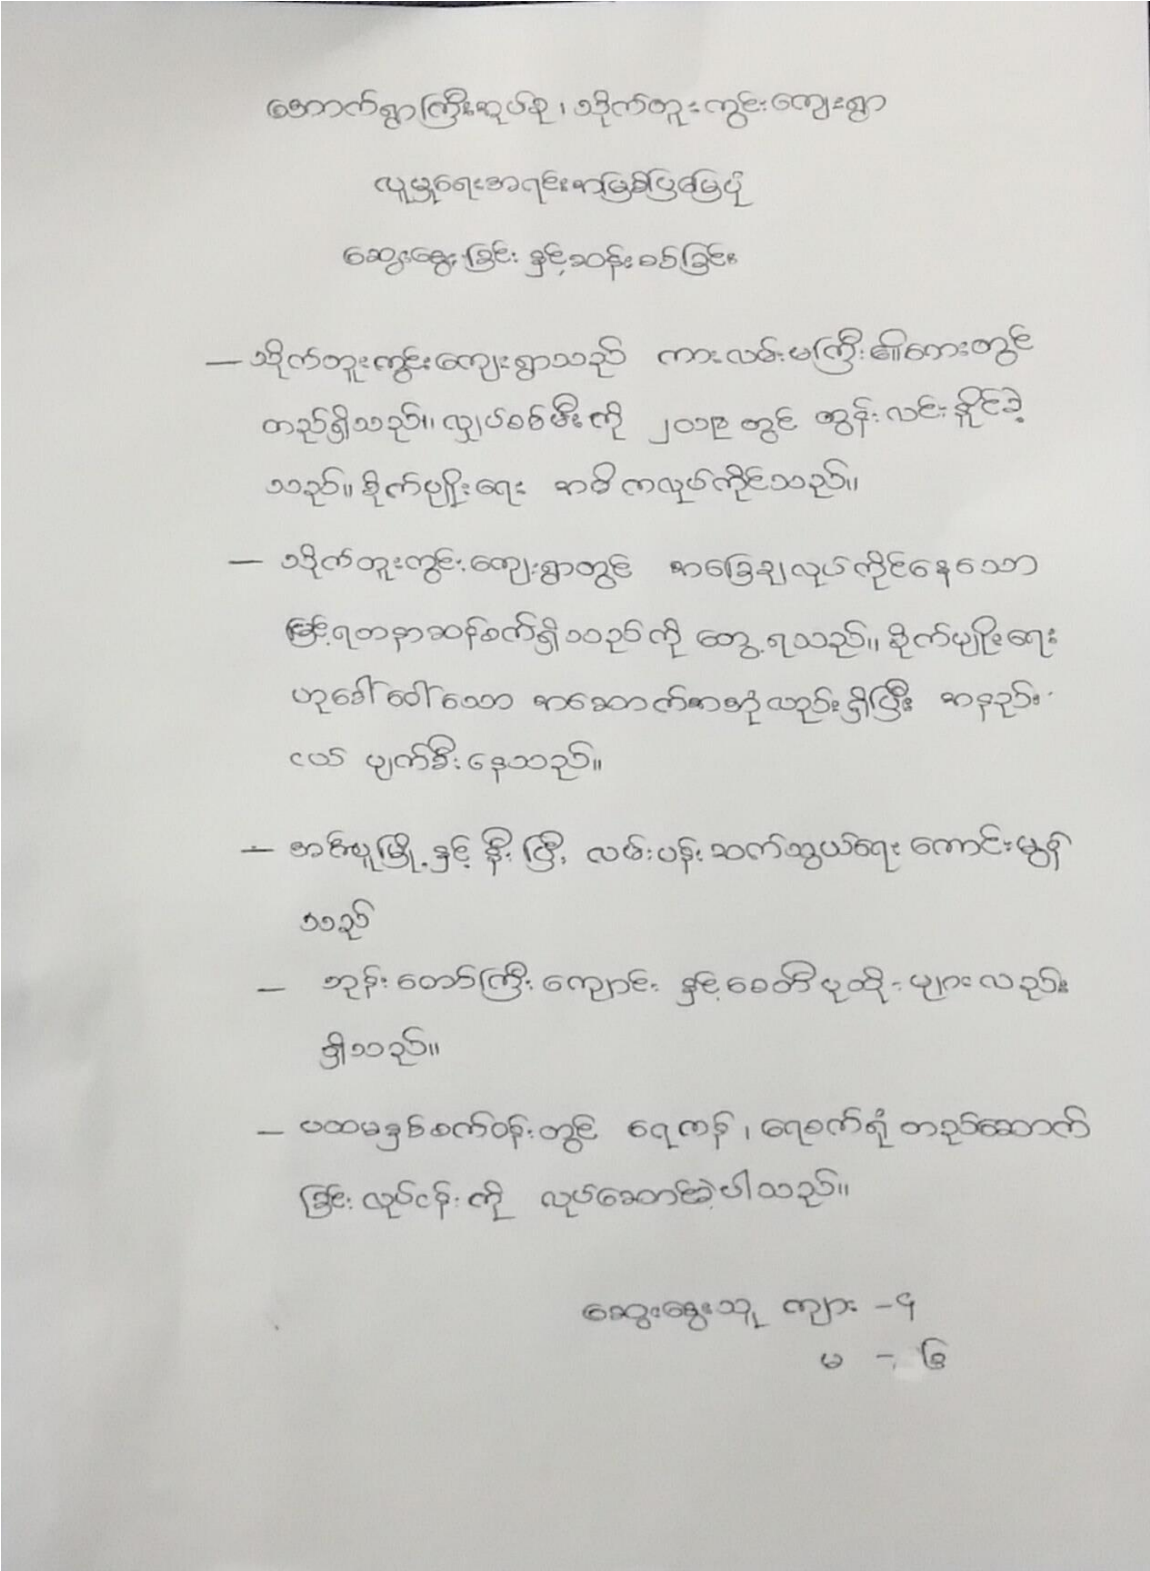 အောက်ရွာကြီးအုပ်စု၊ သိုက်တူးကွင်းကျေးရွာ
လူမှုရေးအရင်းအမြစ်ပြမြေပုံ
ဆွေးနွေးခြင်း နှင့်ဆန်းစစ်ခြင်း
— သိုက်တူးကွင်းကျေးရွာသည် ကားလမ်းမကြီး၏ဘေးတွင်
တည်ရှိသည်။ လျှပ်စစ်မီးကို ၂၀၁၉ တွင် ထွန်းလင်းနိုင်ခဲ့
သည်။ စိုက်ပျိုးရေး အဓိကလုပ်ကိုင်သည်။
— သိုက်တူးကွင်းကျေးရွာတွင် အခြေချလုပ်ကိုင်နေသော
မြင့်ရတနာဆန်စက်ရှိသည်ကို တွေ့ရသည်။ စိုက်ပျိုးရေး
ဟုခေါ်ဝေါ်သော အဆောက်အအုံလည်းရှိပြီး အနည်း
ငယ် ပျက်စီးနေသည်။
— အင်္ဂပူမြို့နှင့် နီးပြီး လမ်းပန်းဆက်သွယ်ရေး ကောင်းမွန်
သည်
— ဘုန်းတော်ကြီးကျောင်း နှင့်စေတီပုထိုးများလည်း
ရှိသည်။
— ပထမနှစ်စက်ဝန်းတွင် ရေကန်၊ ရေစက်ရုံ တည်ဆောက်
ခြင်းလုပ်ငန်းကို လုပ်ဆောင်ခဲ့ပါသည်။
ဆွေးနွေးသူ ကျား - ၄
မ - ၆